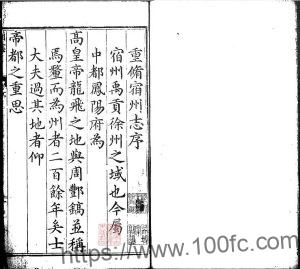 重脩宿州志序
宿州禹貢徐州之域也今屬
中都鳳陽府為
高皇帝龍飛之地與周酆鎬並稱
焉釐而為州者二百餘年矣士
大夫過其地者仰
帝都之重思
https://www.100fc.com